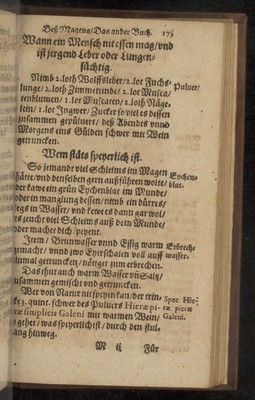 Deß Magens/Das ander Buch. 175
Wann ein Mensch nit essen mag/vnd
ist jergend Leber oder Lungen-
süchtig.
Nimb 2.loth Wolffsleber/2.loth Fuchs-
lunge/2.loth Zimmetrinde/2.loth Musca/ Pulver/
tenblumen/1.loth Muscaten/2.loth Näge-
lein/1.lot Ingwer/Zucker so viel es dessen
zusammen gepülvert/deß Abendes vnnd
Morgens eins Gülden schwer mit Wein
getruncken.
Wem stäts speyerlich ist.
So jemande viel Schleims im Magen Eychen-
hätte/vnd denselben gern außführen wolte/ blat.
der kawe ein grün Eychenblat im Munde/
oder in manglung dessen/nimb ein dürres/
legs in Wasser/vnd kewe es dann gar wol/
es zeucht viel Schleims auß dem Munde/
oder machet dich/speyent.
Item/Brunwasser vnnd Essig warm Erbrech-
gemacht/vnnd zwo Eyerschalen voll auff wasser.
einmal getruncken/nötiget zum erbrechen.
Das thut auch warm Wasser vñ Saltz/
zusammen gemischt vnd getruncken.
Wer von Natur nit speyen kan/der trin-
ke 3. quint. schwer des Pulvers Hieræ pi- Spec. Hie-
cræ simplicis Galeni mit warmen Wein/ ræ picræ
so gehet/was speyerlich ist/durch den stul- Galeni.
gang hinweg.
M ij Für